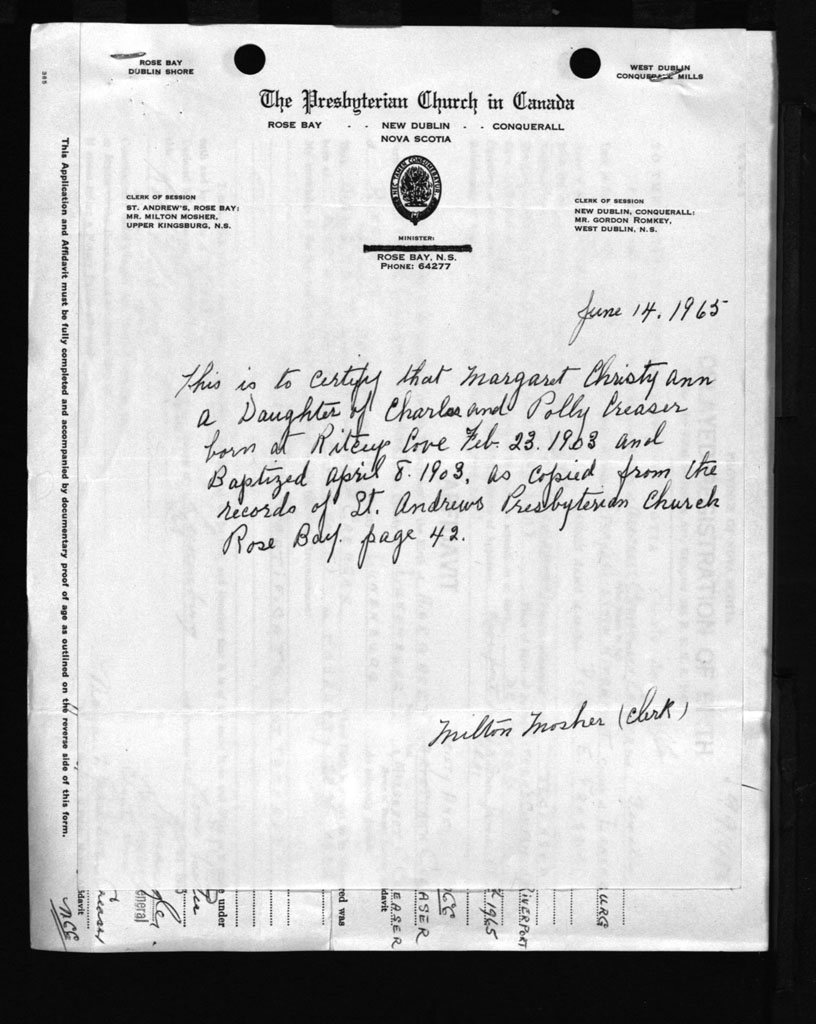 ROSE BAY
DUBLIN SHORE
WEST DUBLIN
CONQUERALL MILLS
The Presbyterian Church in Canada
ROSE BAY - - NEW DUBLIN - - CONQUERALL
NOVA SCOTIA
NEC TAMEN CONSUMEBATUR
CLERK OF SESSION
ST. ANDREW'S, ROSE BAY:
MR. MILTON MOSHER,
UPPER KINGSBURG, N.S.
CLERK OF SESSION
NEW DUBLIN, CONQUERALL:
MR. GORDON ROMKEY,
WEST DUBLIN, N.S.
MINISTER:
ROSE BAY, N.S.
PHONE: 64277
June 14. 1965
This is to certify that Margaret Christy Ann
a Daughter of Charles and Polly Creaser
born at Ritcey Cove Feb. 23. 1903 and
Baptized April 8. 1903, as copied from the
records of St. Andrews Presbyterian Church
Rose Bay. page 42.
Milton Mosher (Clerk)
This Application and Affidavit must be fully completed and accompanied by documentary proof of age as outlined on the reverse side of this form.
URG
IVERPORT
1965
ASER
EASER
davit
red was
e under
neral
reaser
idavit